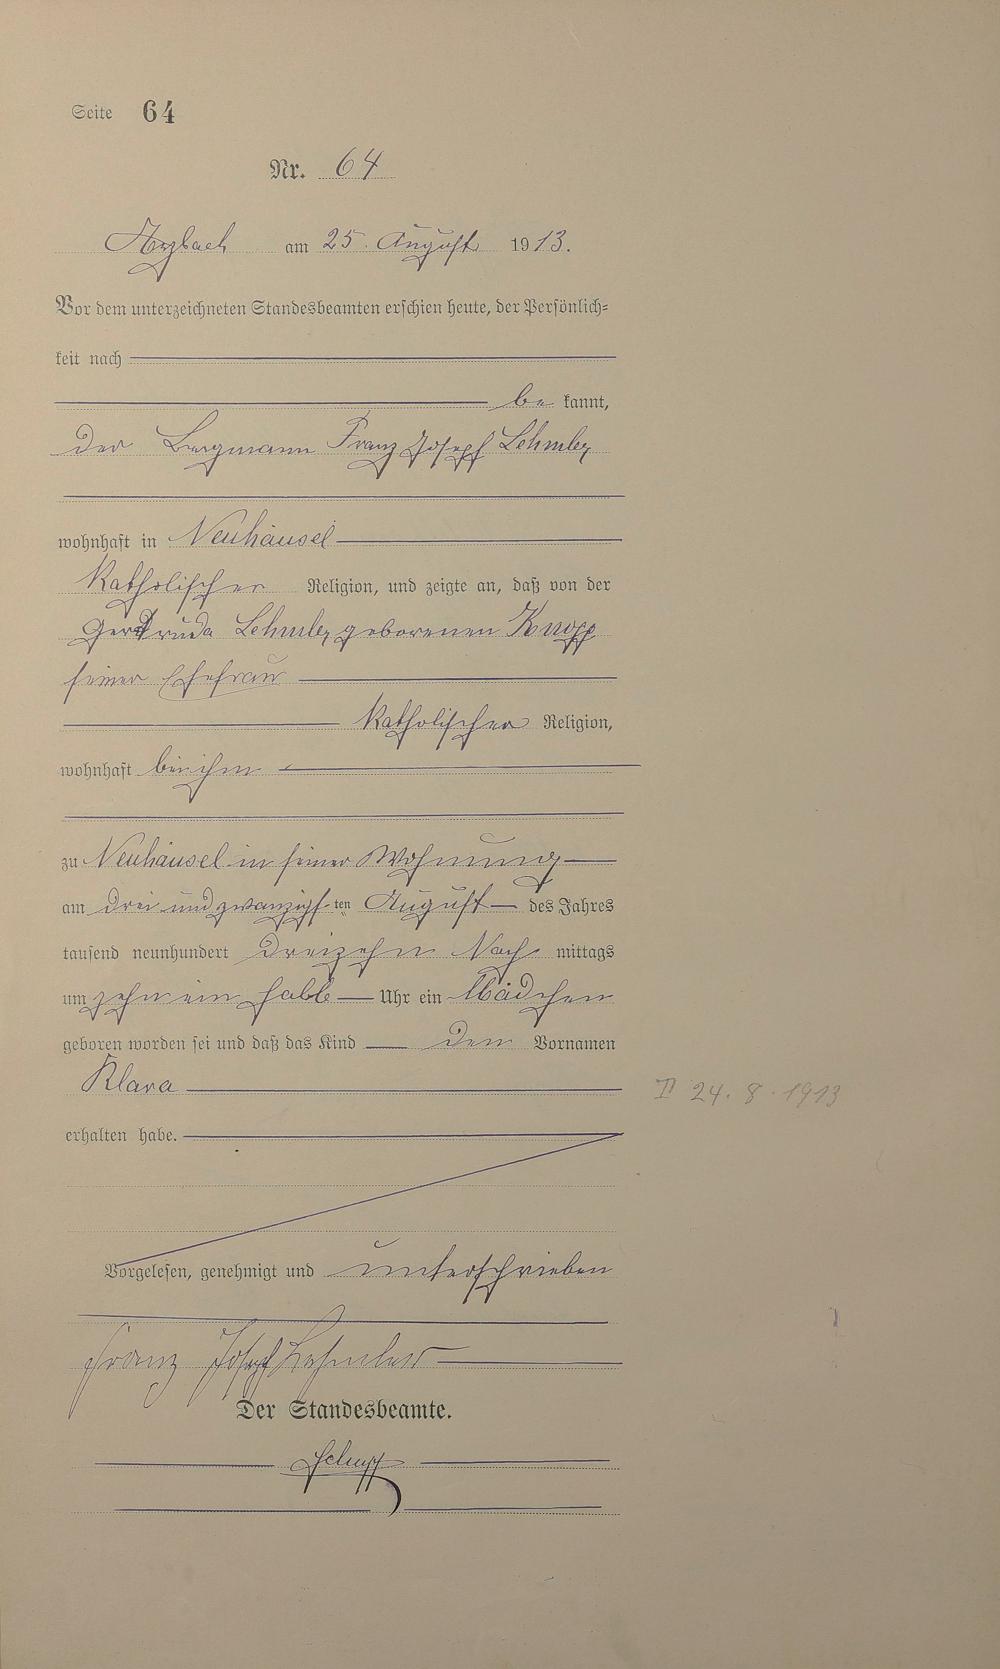 Seite 64
Nr. 64
Arzbach am 25. August 1913.
Vor dem unterzeichneten Standesbeamten erschien heute, der Persönlich-
keit nach
be kannt,
der Bergmann Franz Josef Lehmler
wohnhaft in Neuhäusel
katholischer Religion, und zeigte an, daß von der
Gertruda Lehmler geborenen Knopp
seiner Ehefrau
katholischer Religion,
wohnhaft bei ihm
zu Neuhäusel in seiner Wohnung
am drei und zwanzigsten August des Jahres
tausend neunhundert dreizehn Nach mittags
um zehn ein halb Uhr ein Mädchen
geboren worden sei und daß das Kind den Vornamen
Klara
24. 8. 1913
erhalten habe.
Vorgelesen, genehmigt und unterschrieben
Franz Josef Lehmler
Der Standesbeamte.